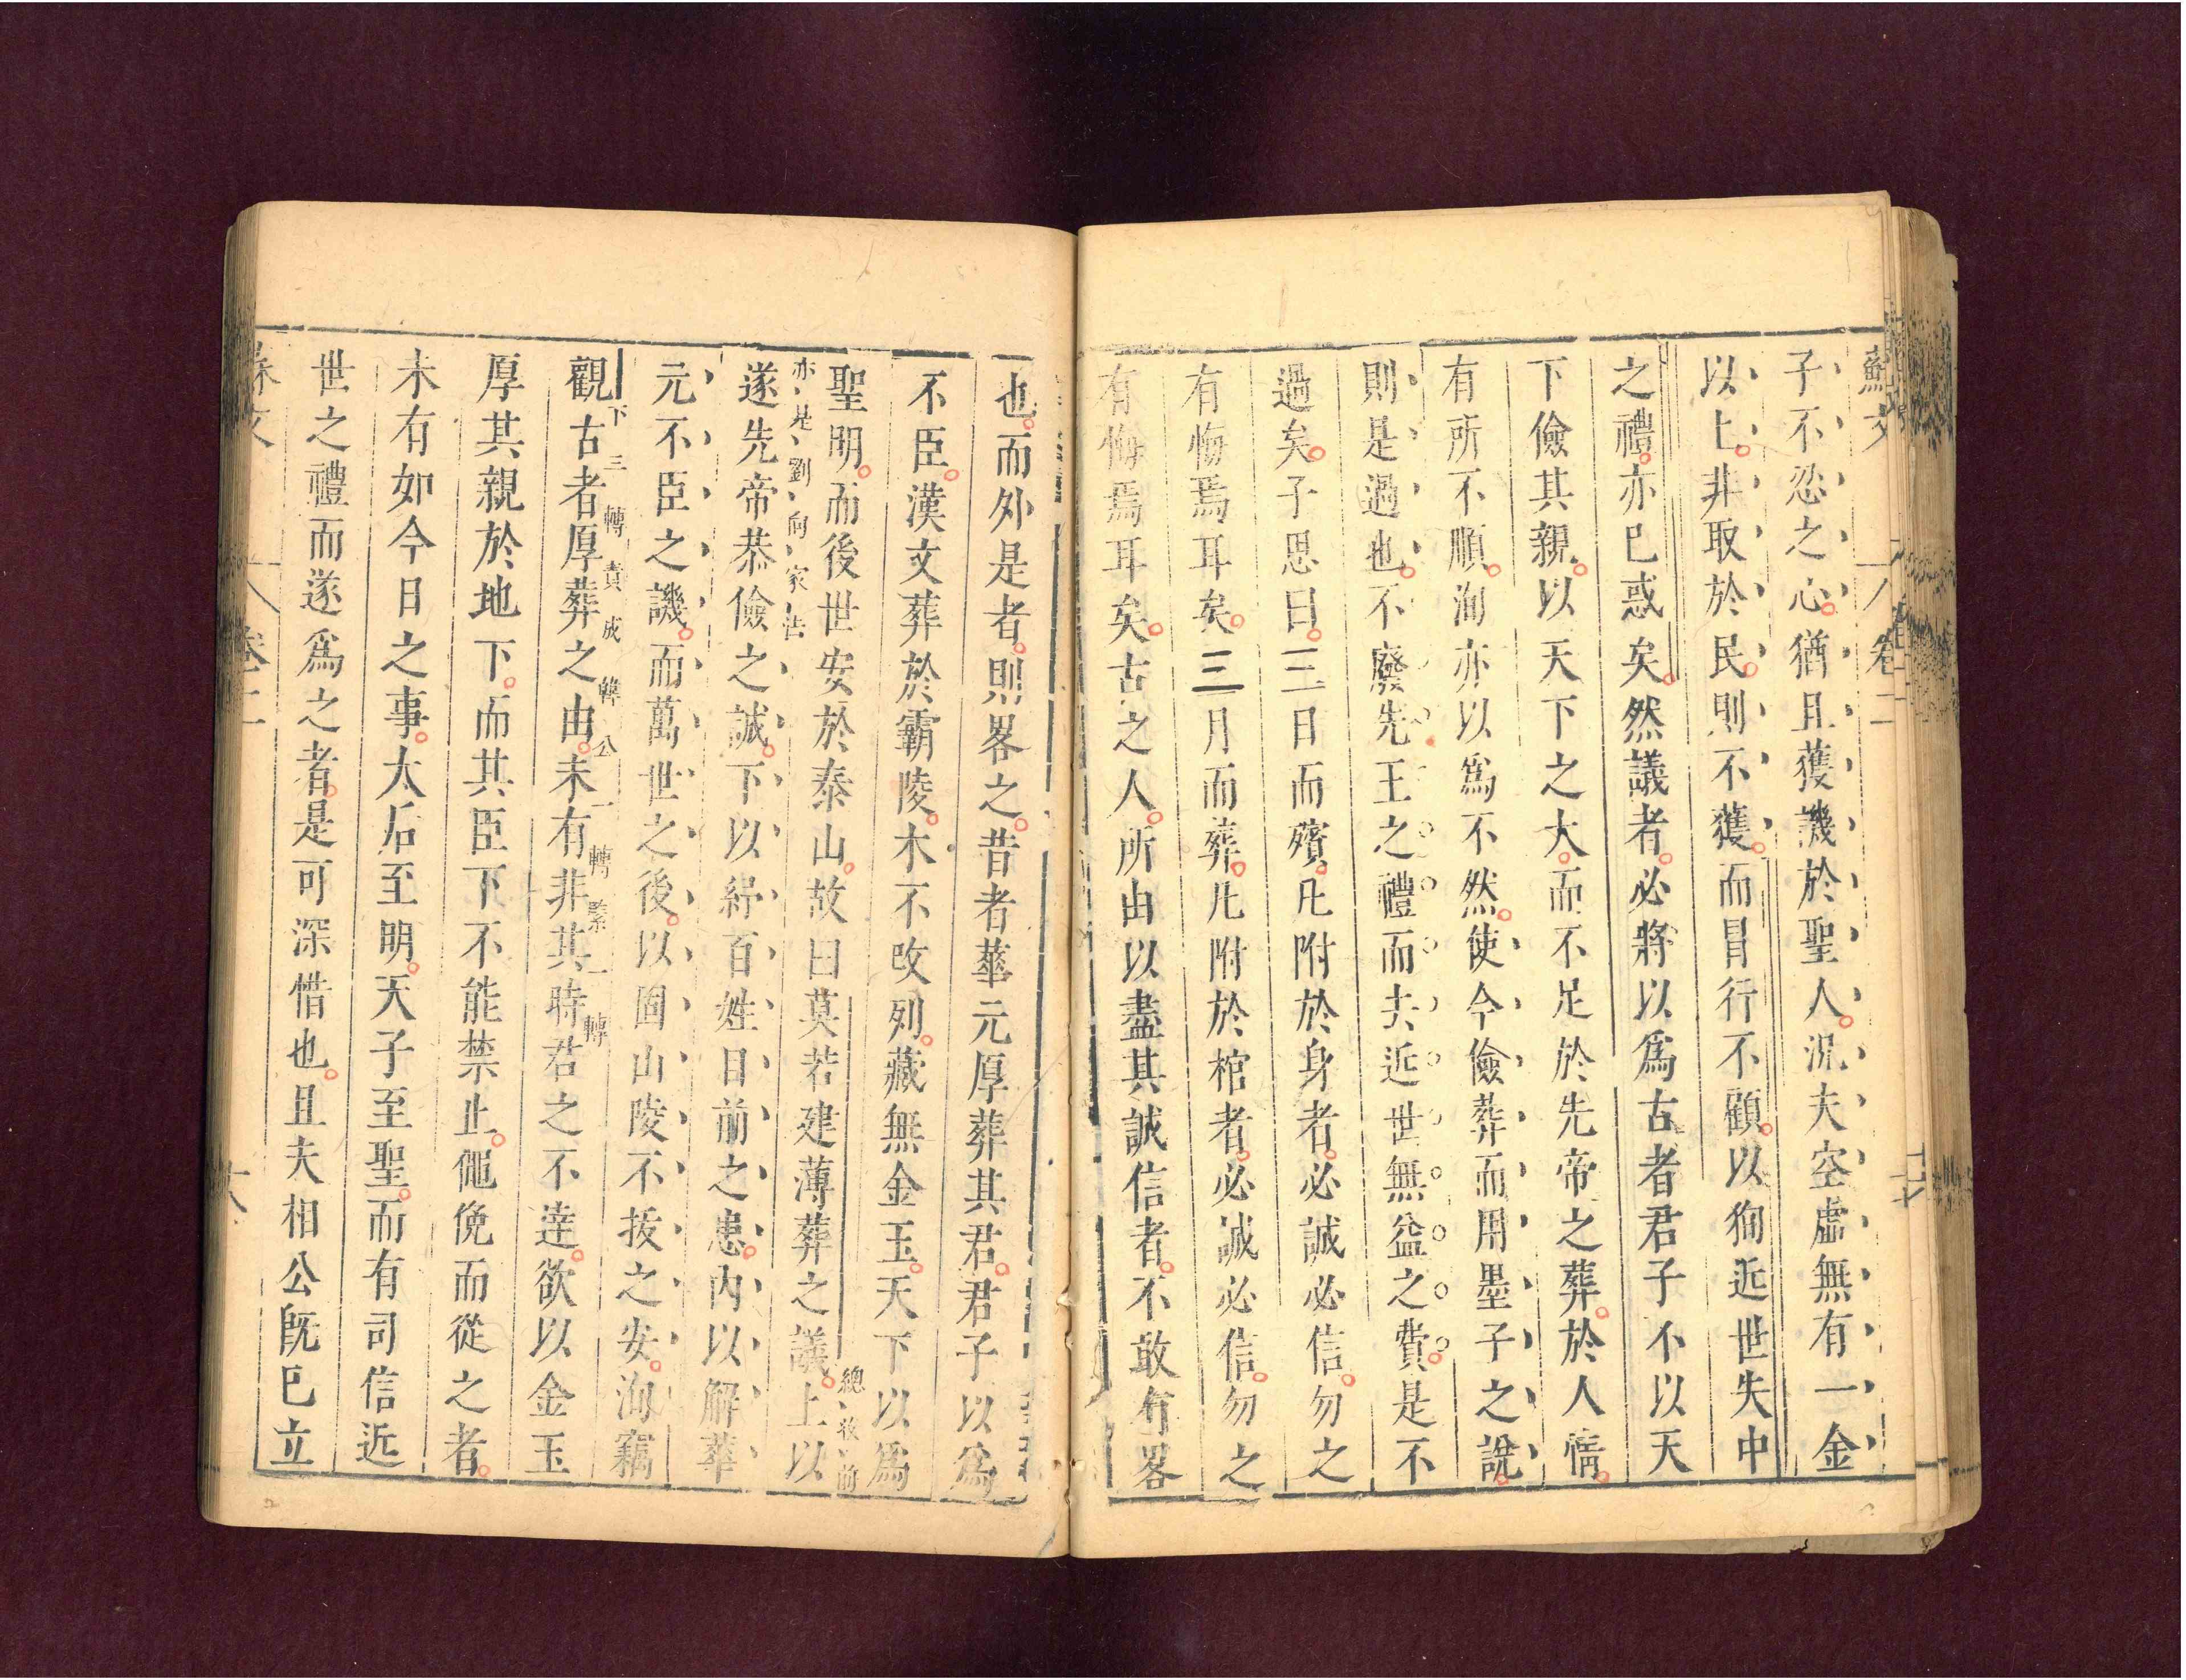 蘇文
卷二
子不恐之心猶且獲譏於聖人況夫空虛無有一金
以上非取於民則不獲而冒行不顧以狥近世失中
之禮亦已惑矣然議者必將以爲古者君子不以天
下儉其親以天下之大而不足於先帝之葬於人情
有所不順洵亦以爲不然使今儉葬而用墨子之說
則是過也不廢先王之禮而去近世無益之費是不
過矣子思曰三日而殯凡附於身者必誠必信勿之
有悔焉耳矣三月而葬凡附於棺者必誠必信勿之
有悔焉耳矣古之人所由以盡其誠信者不敢有畧
也而外是者則畧之昔者華元厚葬其君君子以爲
不臣漢文葬於霸陵木不改列藏無金玉天下以爲
聖明而後世安於泰山故曰莫若建薄葬之議上以
總後前
亦是劉向家法
遂先帝恭儉之誠下以紓百姓目前之患內以解華
元不臣之譏而萬世之後以固山陵不拔之安洵竊
下三轉責成韓公一轉緊一轉
觀古者厚葬之由未有非其時君之不達欲以金玉
厚其親於地下而其臣下不能禁止僶俛而從之者
未有如今日之事太后至明天子至聖而有司信近
世之禮而遂爲之者是可深惜也且夫相公旣已立
蘇文
卷二
六